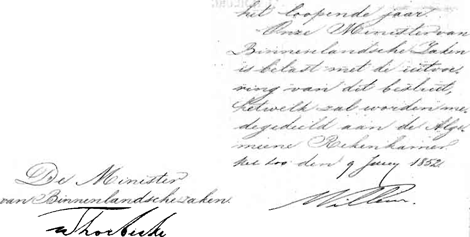 het loopende jaar.
Onze Minister van
Binnenlandsche Zaken
is belast met de uitvoe,
ring van dit besluit,
hetwelk zal worden me,
degedeeld aan de Alge
meene Rekenkamer
Het Loo den 9 Juny 1852.
Willem.
De Minister
van Binnenlandsche zaken.
Thorbecke